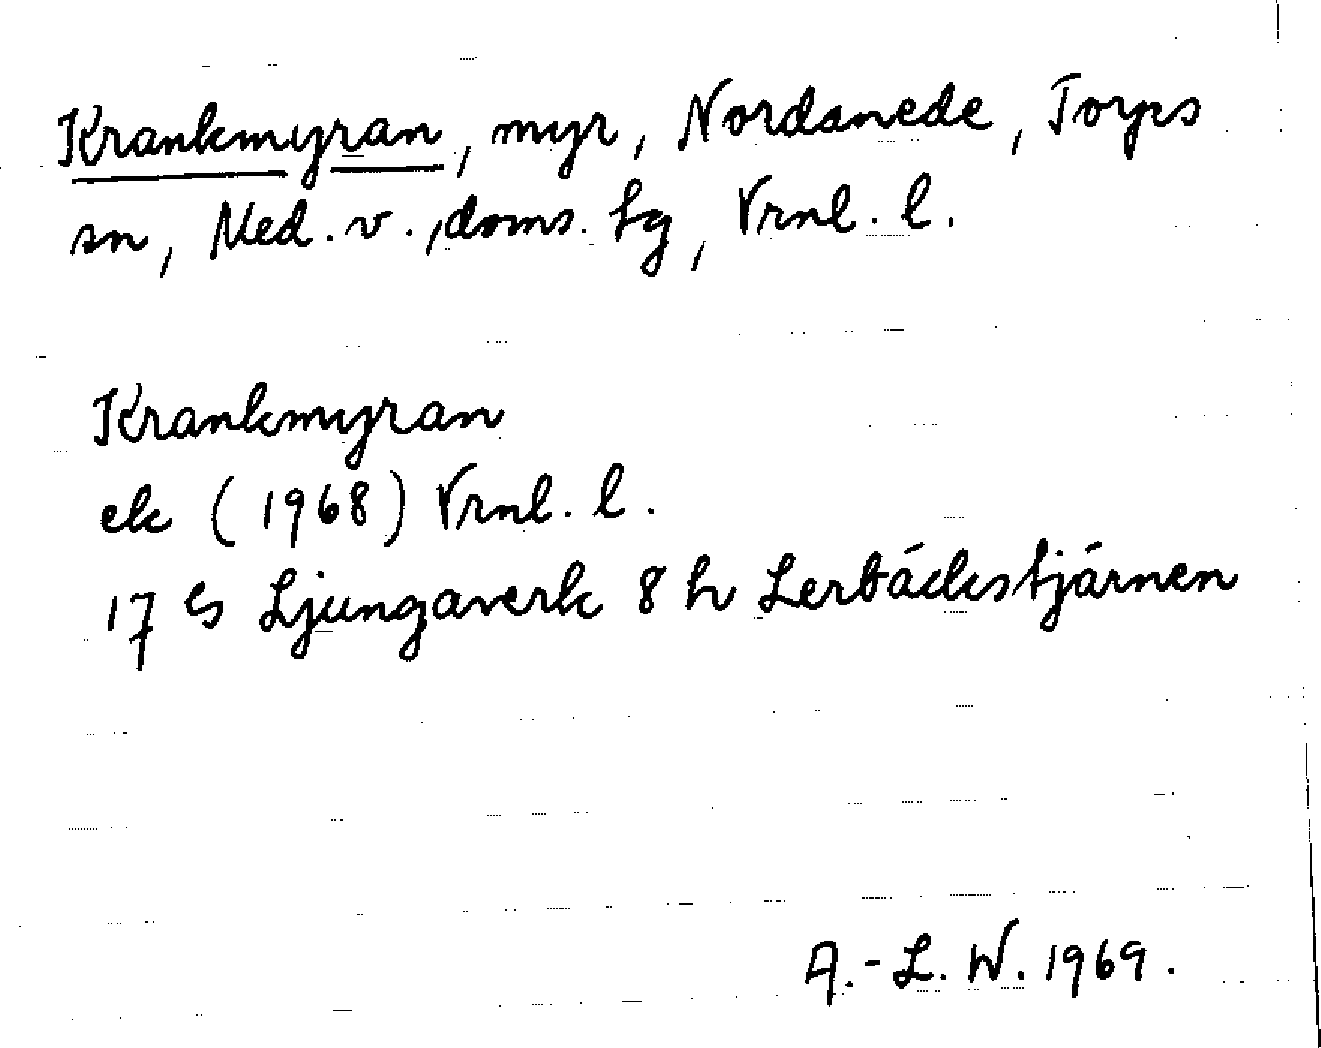 Krankmyran, myr, Nordanede, Torps
sn, Med. v., doms. hg, Vrnl. l.
Krankmyran
ek (1968) Vrnl. l.
17 Es Ljungaverk 8 h Lerbäckstjärnen
A.-L. W. 1969.